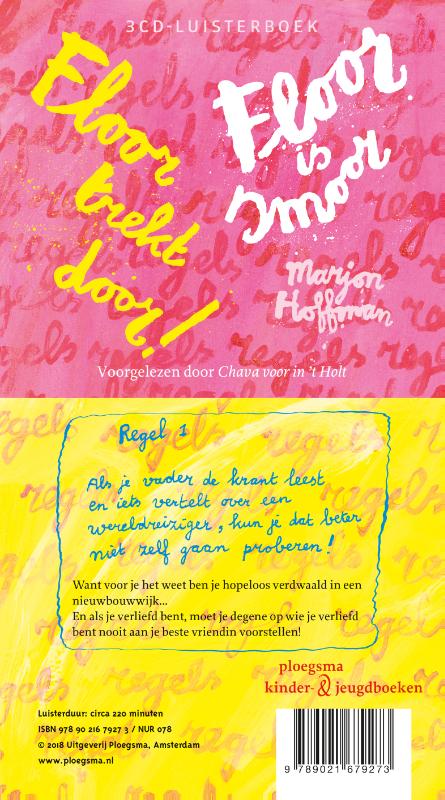 3CD-LUISTERBOEK
Floor
trekt
door!
Floor
is
smoor
Marjon
Hoffman
Voorgelezen door Chava voor in 't Holt
Regel 1
Als je vader de krant leest
en iets vertelt over een
wereldreiziger, kun je dat beter
niet zelf gaan proberen!
Want voor je het weet ben je hopeloos verdwaald in een
nieuwbouwwijk...
En als je verliefd bent, moet je degene op wie je verliefd
bent nooit aan je beste vriendin voorstellen!
ploegsma
kinder- & jeugdboeken
Luisterduur: circa 220 minuten
ISBN 978 90 216 7927 3 / NUR 078
© 2018 Uitgeverij Ploegsma, Amsterdam
www.ploegsma.nl
9 789021 679273